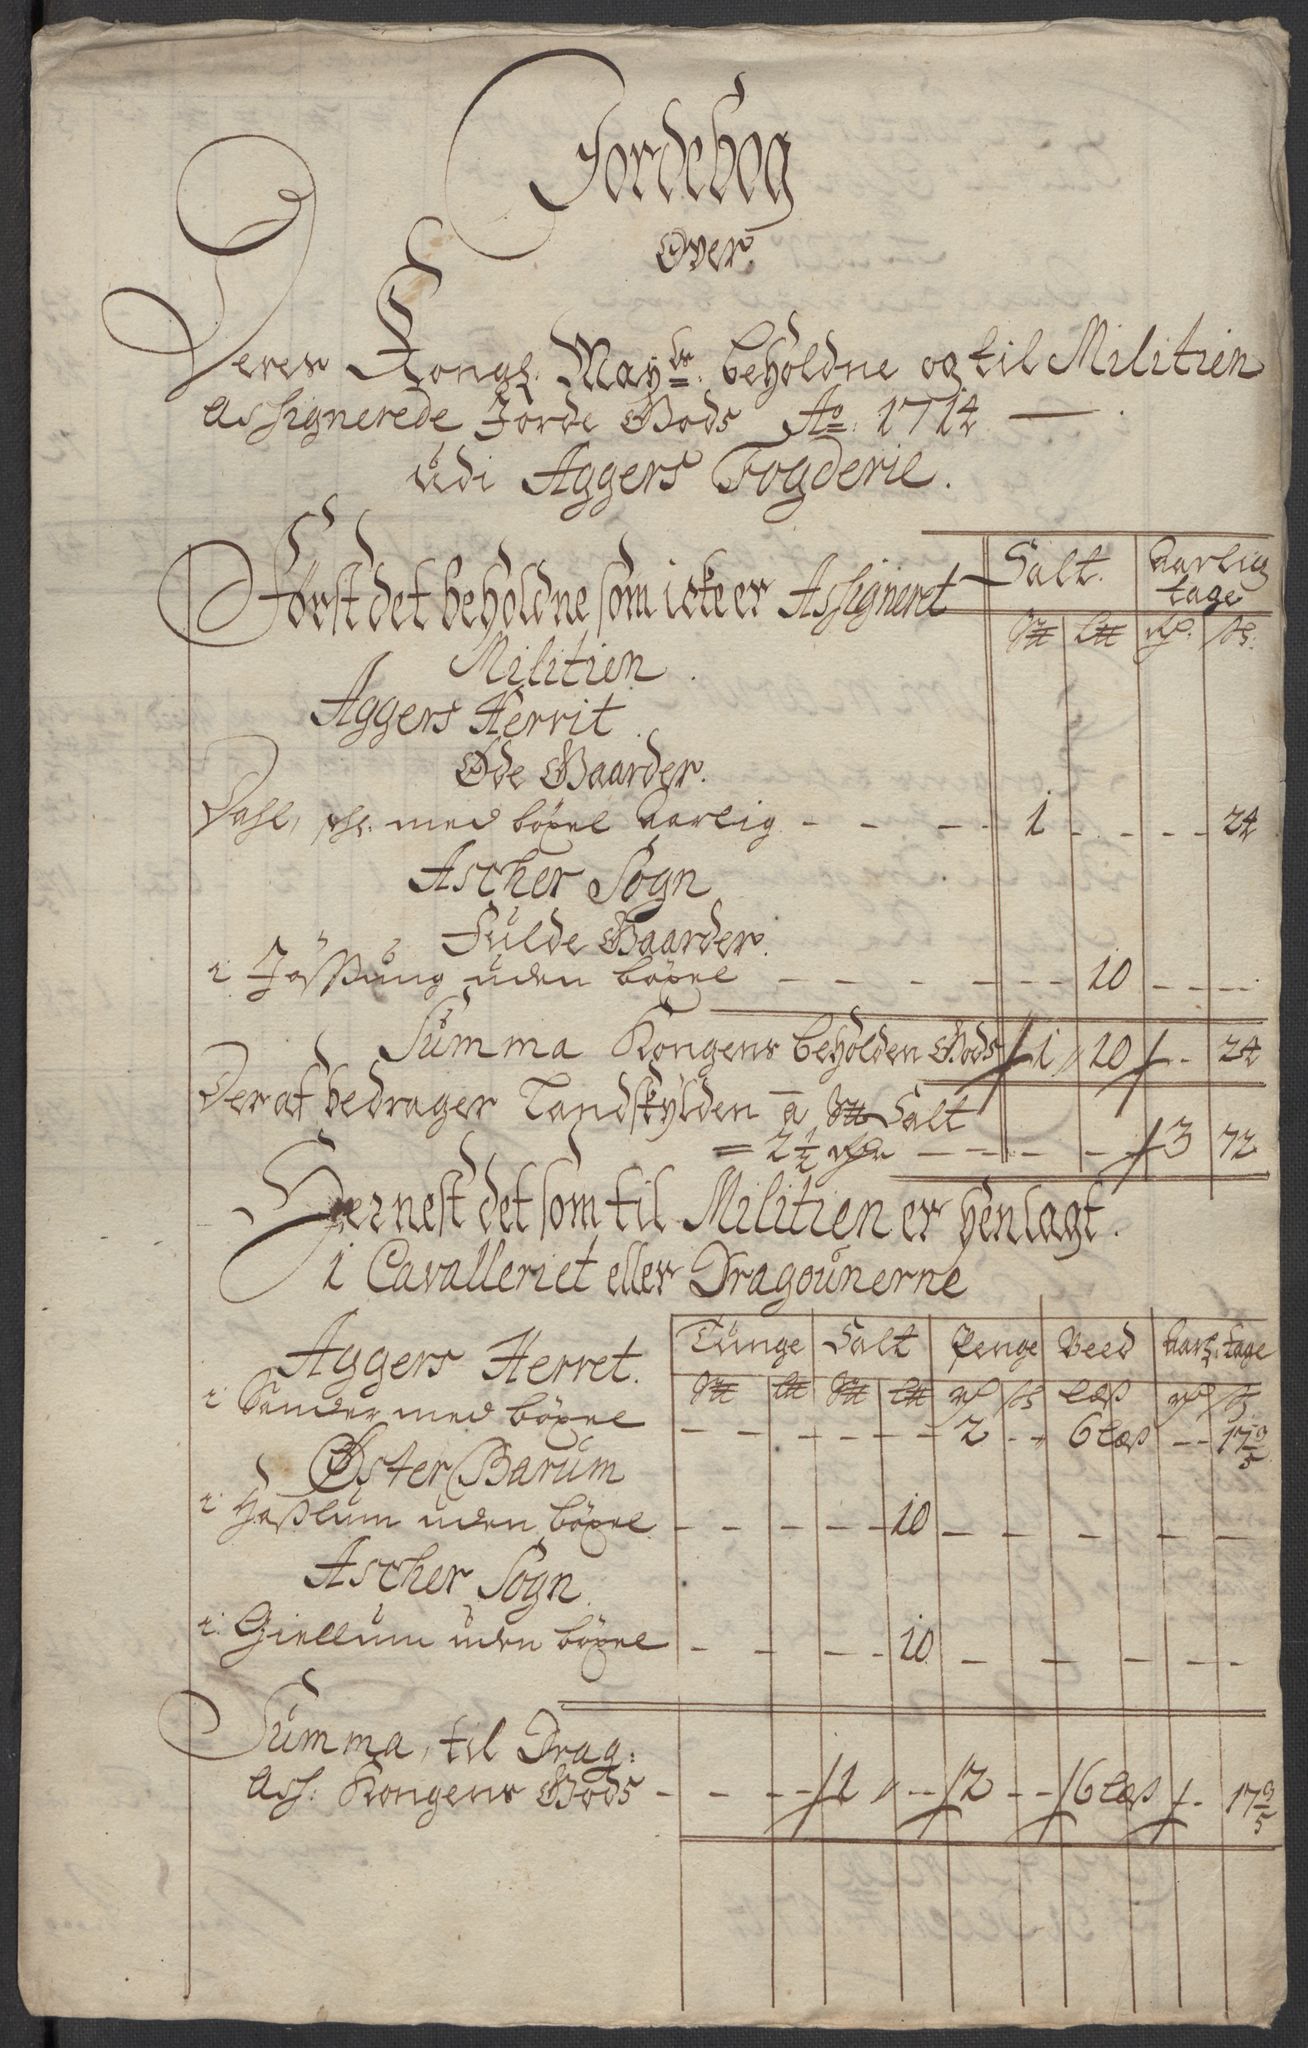 Jordebog
Over
Deres Kongl. Mayts. beholdne og til Militien
assignerede Jorde Gods Ao. 1714
udi Aggers Fogderie.
Først det beholdne som icke er Assigneret Salt. Aarlig
tage
Militien.
Aggers Herrit.
Øde Gaarder.
Dahl, med böxel aarlig - - - - 1 - - - - 24
Ascher Sogn
Fulde Gaarder.
uden böxel - - - - - - 10 - - - -
Summa Kongens beholden Gods 1 10 - - 24
Deraf bedrager Landskylden a Salt
= 2 1/2 - - - - - 3 72
Hernest det som til Militien er henlagt.
i Cavalleriet eller Dragounerne
Tunge Salt Penge Veed Aarl. tage
Aggers Herret.
med böxel - - - - - - 2 - - 6 læs - - 17 9/5
Øster Barum
Haslum uden böxel - - - - 10 - - - - - -
Ascher Sogn
Giellum uden böxel - - - - 10 - - - - - -
Summa, til Drag:
Ass: Kongens Gods - - - - 1 - - 2 - - 6 læs - 17 9/5